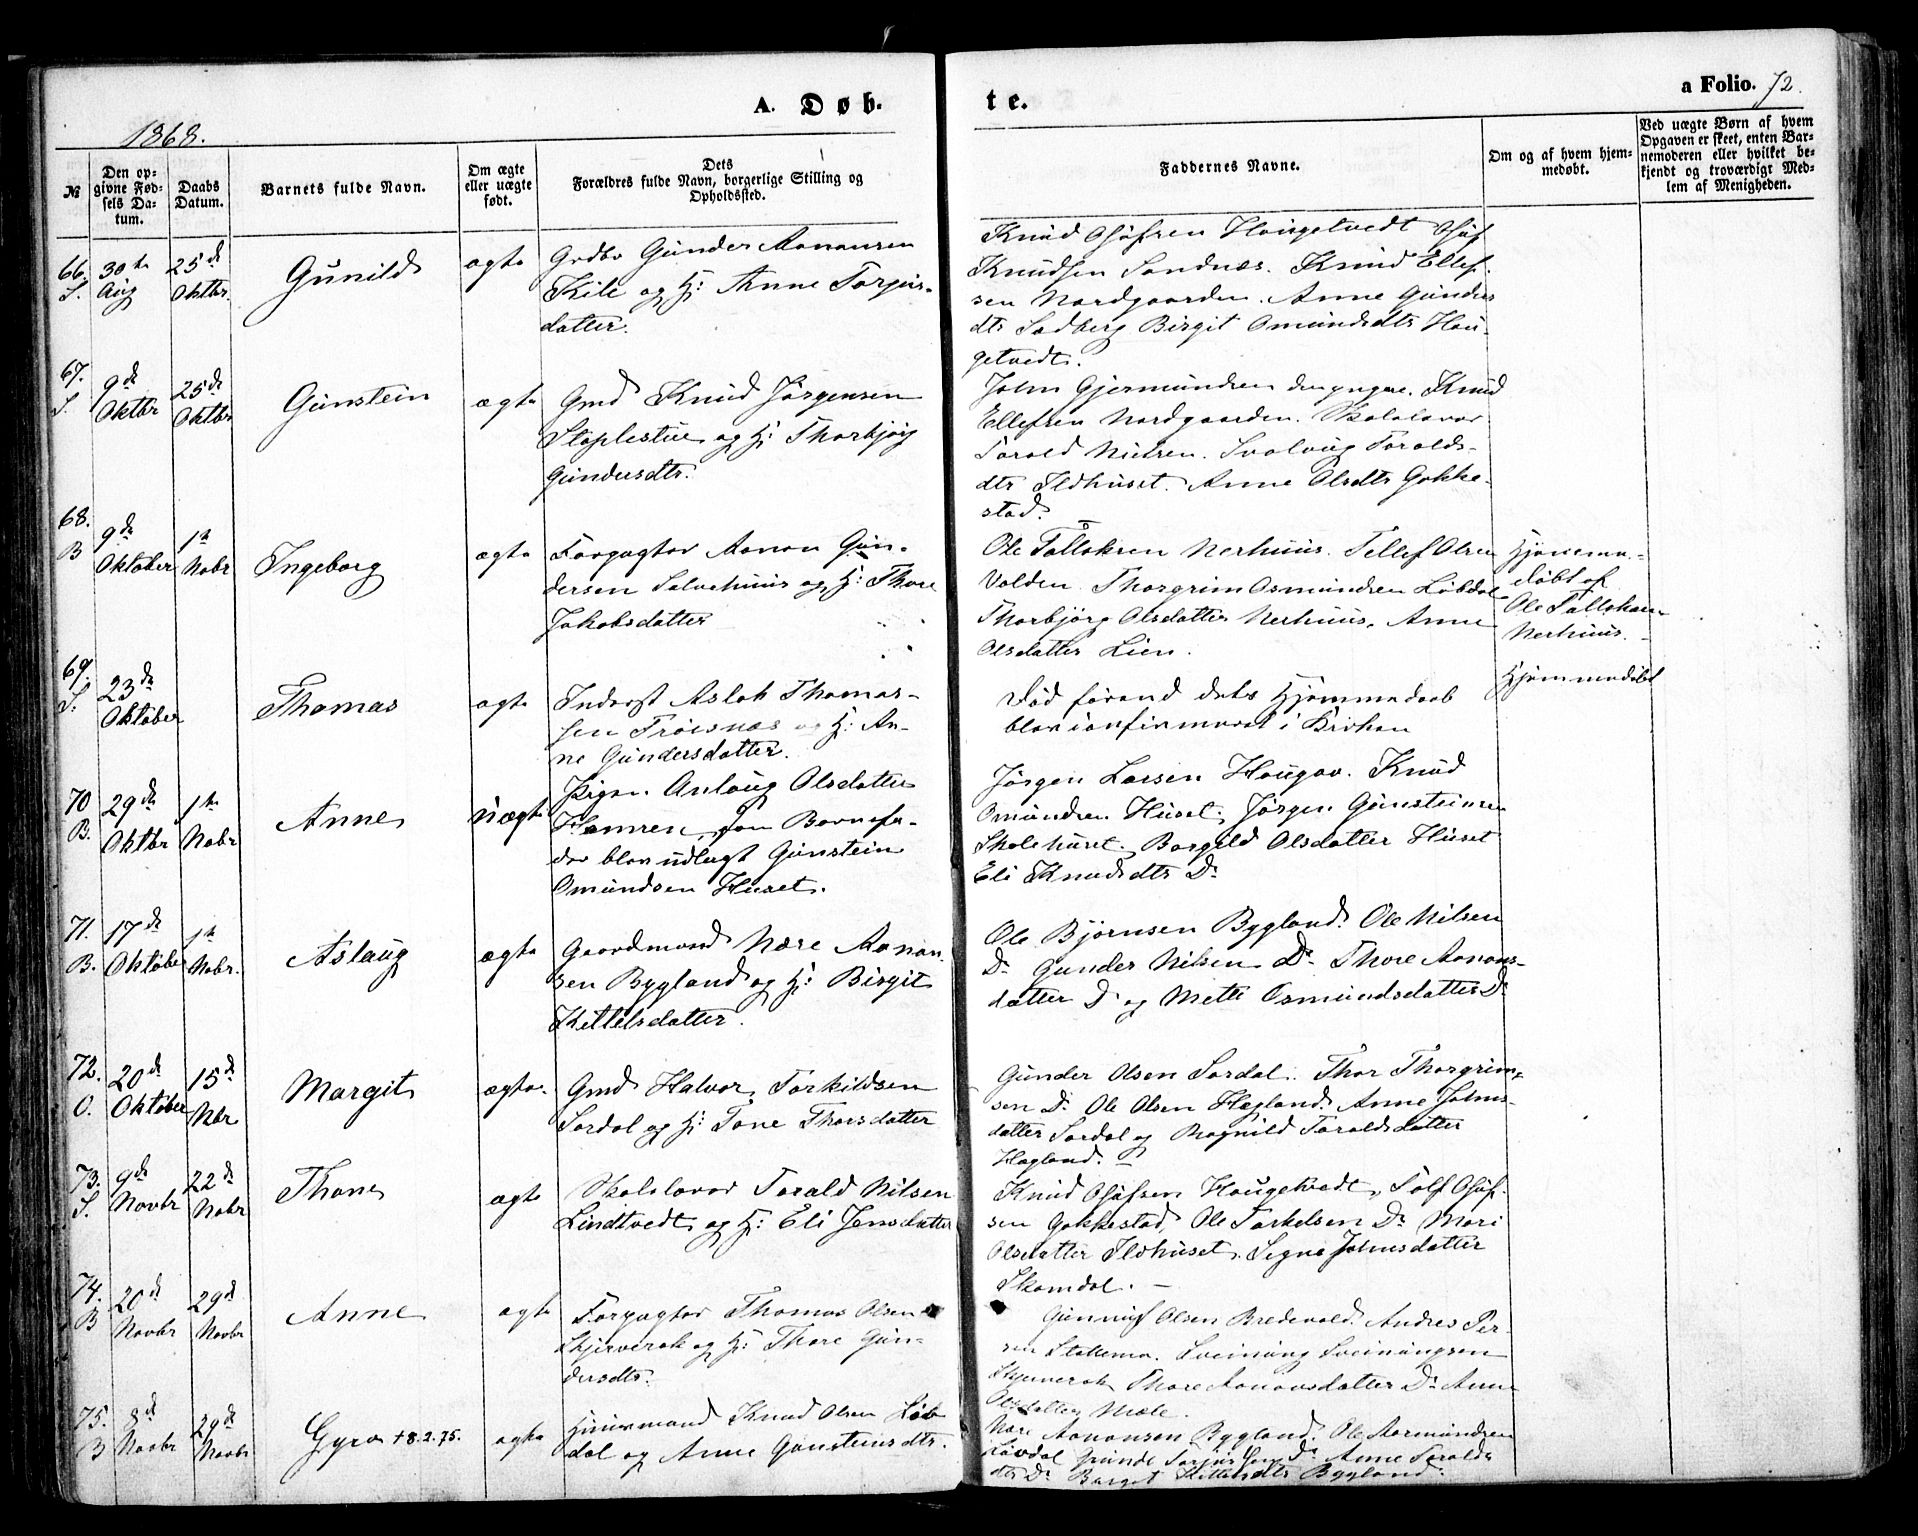 A. Døb-
te.
a Folio. 72.
1868.
№
Den op-
givne Fød-
sels Da-
tum.
Daabs
Datum.
Barnets fulde Navn.
Om ægte
eller uægte
født.
Dets
Forældres fulde Navn, borgerlige Stilling og
Opholdssted.
Faddernes Navne.
Om og af hvem hjem-
medøbt.
Ved uægte Børn af hvem
Opgaven er skeet, enten Bar-
nemoderen eller hvilket be-
kjendt og troværdigt Med-
lem af Menigheden.
66.
S.
30te
Aug
25de
Oktbr.
Gunild
ægte
Grdbr Gunder Aanonsen
Kile og H: Anne Torjus-
datter.
Knud Olufsen Hougetvedt Oluf
Knudsen Sandnæs. Knud Ellef-
sen Nordgaarden. Anne Gunders
dtr Sødberg Birgit Omundsdtr Hou-
getvedt.
67.
S.
9de
Oktbr
25de
Oktbr
Gunstein
ægte
Gmd Knud Jørgensen
Staplestue og H: Thorbjørg
Gundersdtr.
John Gjermundsen den yngre. Knud
Ellefsen Nordgaarden. Skolelærer
Torald Nielsen. Svalaug Toralds-
dtr Ildhuset. Anne Olsdtr Gokke-
stad.
68.
B
9de
Oktober
1ste
Nobr
Ingeborg
ægte
Forpagter Aanon Gun-
dersen Salvehuus og H: Thore
Jakobsdatter
Ole Tallaksen Nerhuus. Tellef Olsen
Valden. Thorgrim Osmundsen Løbdal
Thorbjørg Olsdatter Nerhuus. Anne
Olsdatter Lien.
Hjemme-
døbt af
Ole Tallaksen
Nerhuus.
69.
S.
23de
Oktober
Thomas
ægte
Inderst Aslak Thomas-
sen Frøisnæs og H: An-
ne Gundersdatter.
Død førend dets Hjemmedaab
blev confirmeret i Kirken
Hjemmedøbt
70
B.
29de
Oktbr
1ste
Nobr
Anne
uægte
Pigen Anlaug Olsdatter
Hamren, som Barnefa-
der blev udlagt Gunstein
Omundsen Huset.
Jørgen Larsen Hougen. Knud
Omundsen Huset. Jørgen Gunsteinsen
Skolehuset. Borgild Olsdatter Huset
Eli Knudsdtr Do
71.
B.
17de
Oktober
1ste
Nobr.
Aslaug
ægte
Gaardmand Nære Aanon-
sen Bygland og H: Birgit
Kittelsdatter.
Ole Bjørnsen Bygland. Ole Nilsen
Do Gunder Nilsen Do Thore Aanons-
datter Do og Mette Osmundsdatter Do
72.
O.
20de
Oktober
15de
Nbr
Margit
ægte
Gmd Halvor Torkildsen
Sordal og H: Tone Thorsdatter
Gunder Olsen Sordal. Thor Thorgrim-
sen Do Ole Olsen Hægland. Anne Johns-
datter Sordal og Ragnild Toraldsdatter
Hægland.
73.
S.
9de
Novbr
22de
Nobr
Thone
ægte
Skolelærer Torald Nilsen
Lindtvedt og H: Eli Jensdatter
Knud Olufsen Hougetvedt, Tolf Oluf-
sen Gokkestad, Ole Torkelsen Do Mari
Olsdatter Ildhuset. Signe Johnsdatter
Skomdal.
74.
B
20de
Novbr
29de
Novbr
Anne
ægte
Forpagter Thomas Olsen
Skjeverak og H: Thore Gun-
dersdtr.
Gunnuf Olsen Bredevold. Andres Per-
sen Stallemo. Sveinung Sveinungsen
Skjeverak Thore Aanonsdatter Do Anne
Olsdatter Mæle.
75.
B
8de
Novbr
29de
Novbr
Gyro +8.2.75.
ægte
Huusmand Knud Olsen Løb
dal og Anne Gunsteinsdtr.
Nære Aanonsen Bygland. Ole Aarmundsen
Løvdal Gunde Torjussen Do Anne Toralds
dtr Do Borget Kittelsdtr Bygland.